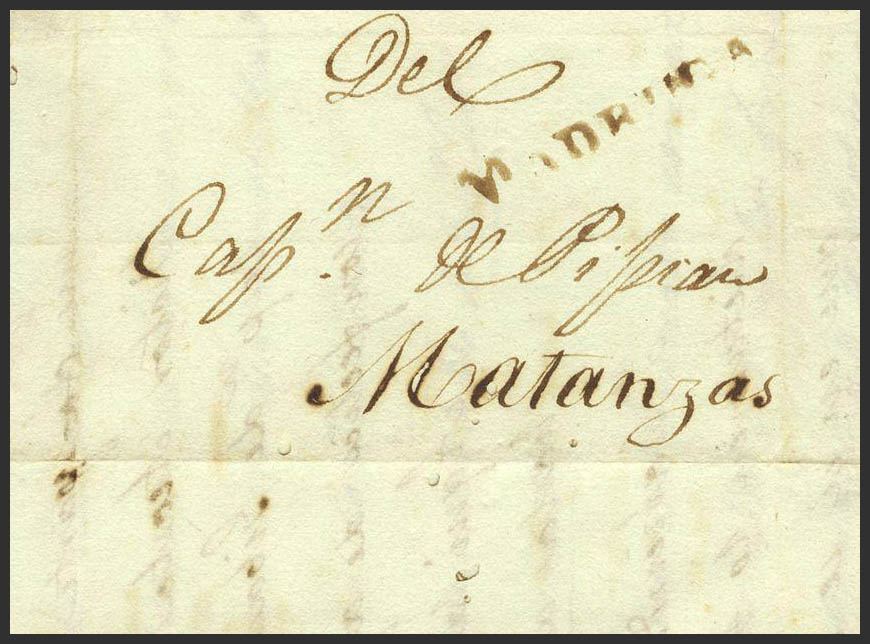 Del
MADRUGA
Cap.ⁿ de Pipian
Matanzas